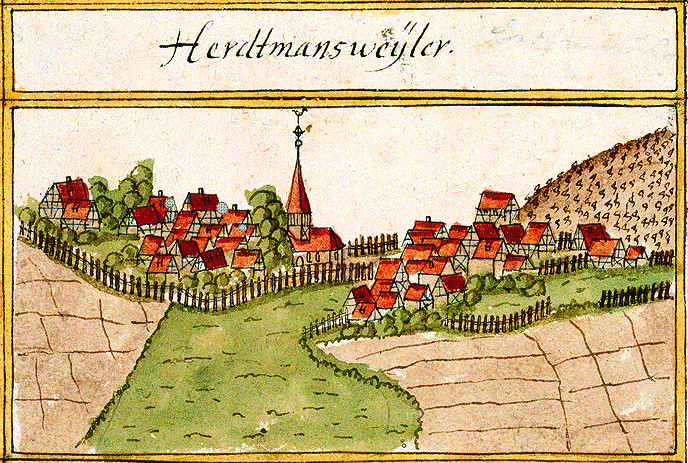 Herdtmansweÿler.